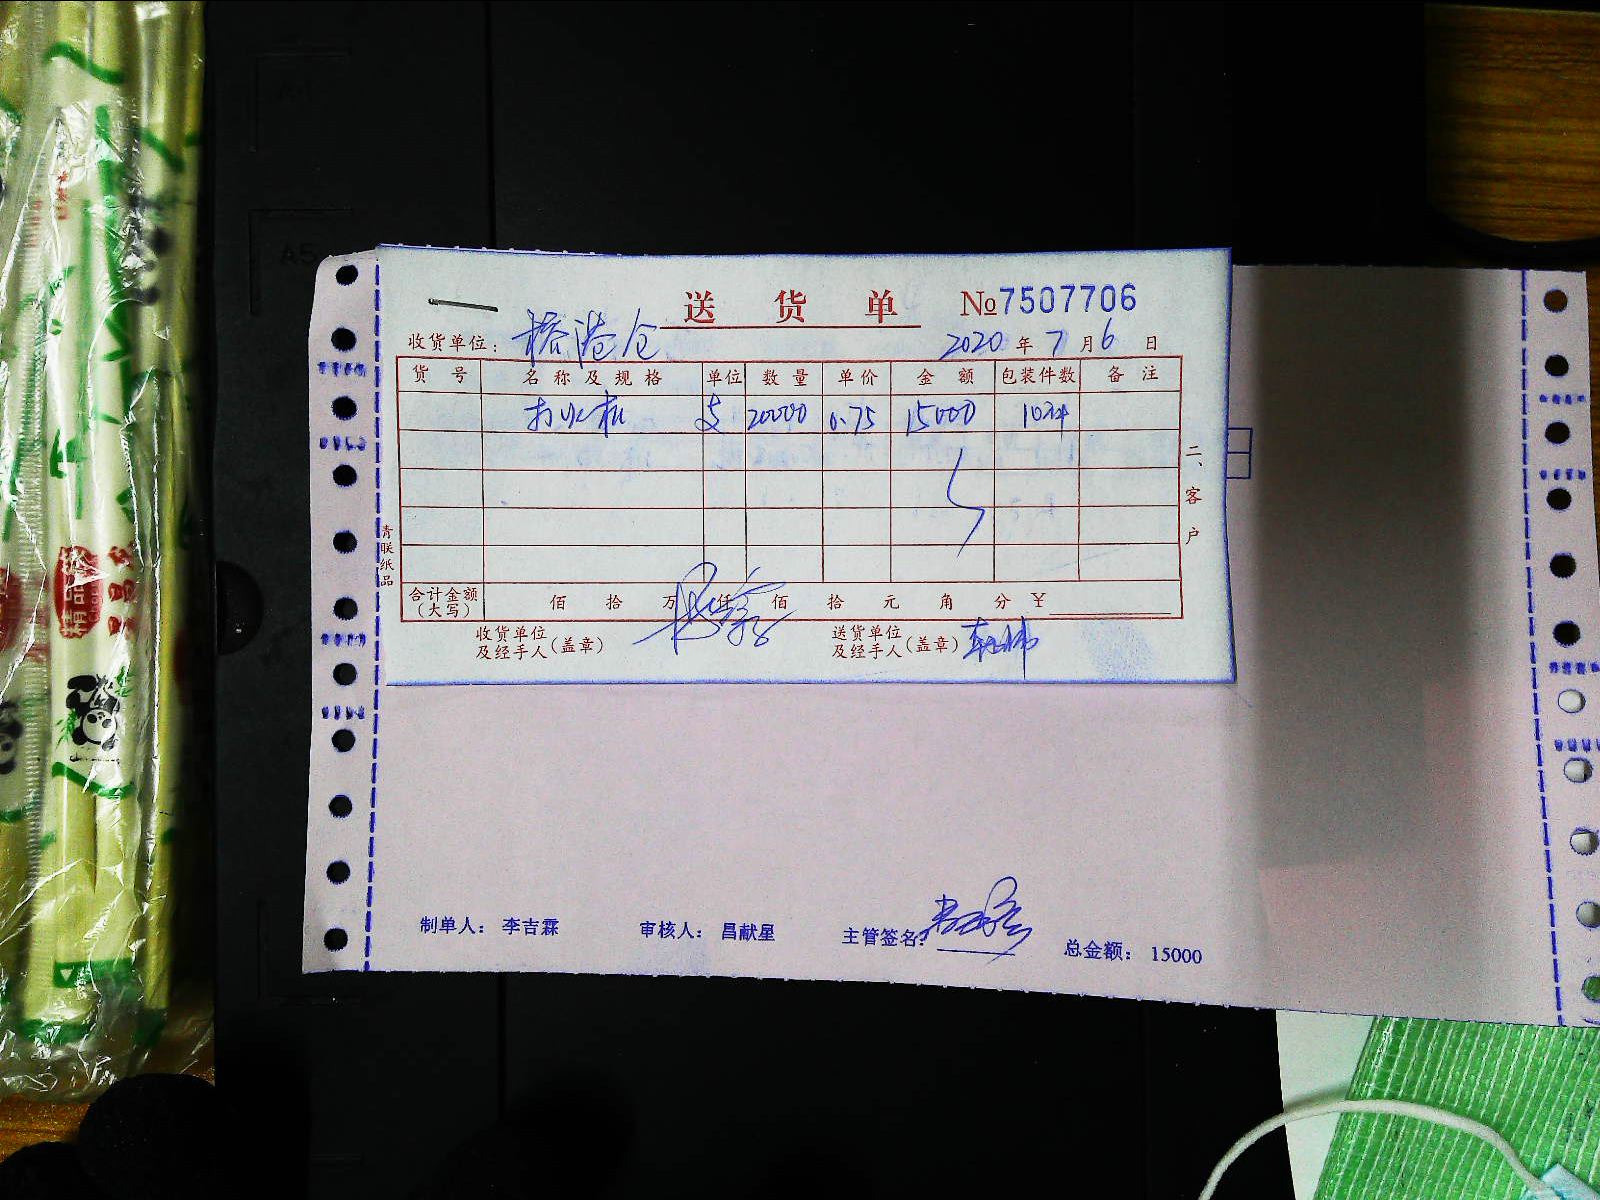 送货单 №7507706
收货单位: 榕港仓 2020年7月6日
货号 名称及规格 单位 数量 单价 金额 包装件数 备注
打火机 支 20000 0.75 15000 10件
二、客户
青联纸品
合计金额(大写) 佰 拾 万 仟 佰 拾 元 角 分 ¥
收货单位及经手人(盖章) 送货单位及经手人(盖章)
制单人: 李吉霖 审核人: 昌献星 主管签名: 总金额: 15000
A5
精品